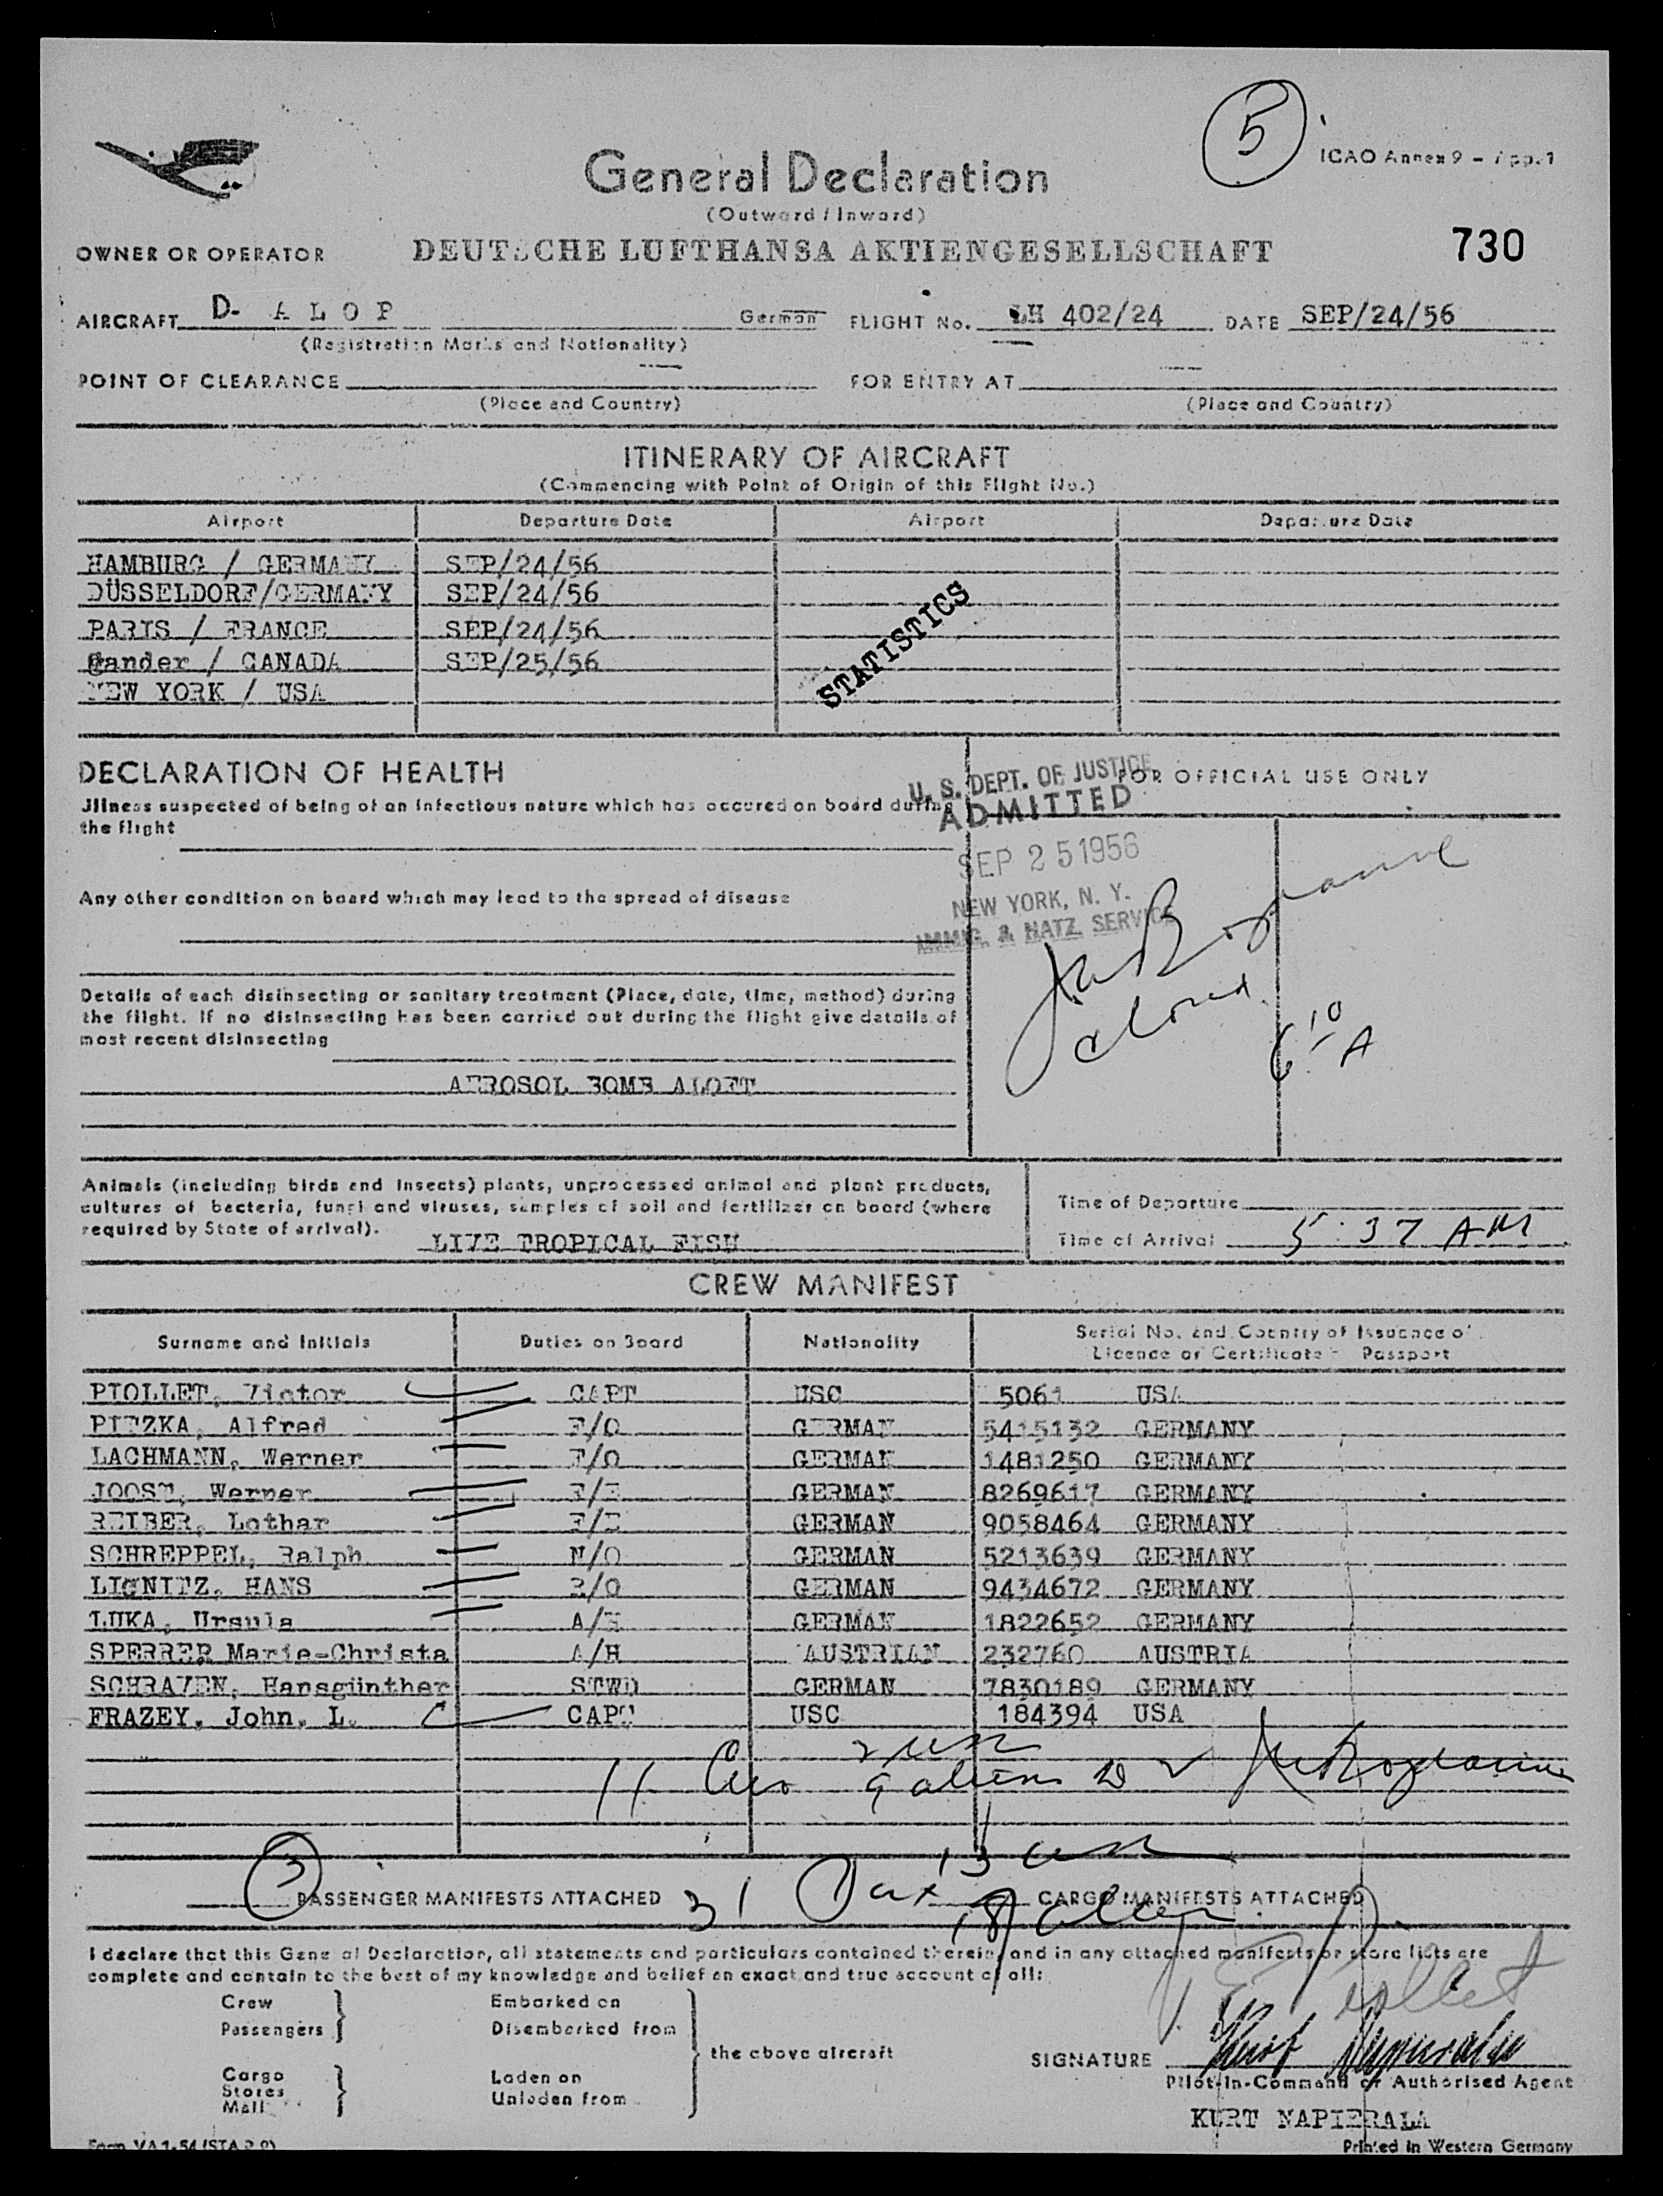 5
ICAO Annex 9 – App. 1
General Declaration
(Outward / Inward)
OWNER OR OPERATOR DEUTSCHE LUFTHANSA AKTIENGESELLSCHAFT 730
AIRCRAFT D- A L O P German FLIGHT No. LH 402/24 DATE SEP/24/56
(Registration Marks and Nationality)
POINT OF CLEARANCE FOR ENTRY AT
(Place and Country) (Place and Country)
ITINERARY OF AIRCRAFT
(Commencing with Point of Origin of this Flight No.)
Airport Departure Date Airport Departure Date
HAMBURG / GERMANY SEP/24/56
DÜSSELDORF/GERMANY SEP/24/56
PARIS / FRANCE SEP/24/56
Gander / CANADA SEP/25/56
NEW YORK / USA
STATISTICS
DECLARATION OF HEALTH
FOR OFFICIAL USE ONLY
Jllness suspected of being of an infectious nature which has occured on board during
the flight
U. S. DEPT. OF JUSTICE
ADMITTED
SEP 25 1956
NEW YORK, N. Y.
IMMIG. & NATZ. SERVICE
Any other condition on board which may lead to the spread of disease
Details of each disinsecting or sanitary treatment (Place, date, time, method) during
the flight. If no disinsecting has been carried out during the flight give details of
most recent disinsecting
AEROSOL BOMB ALOFT
6 10 A
Animals (including birds and insects) plants, unprocessed animal and plant products,
cultures of bacteria, fungi and viruses, samples of soil and fertilizer on board (where
required by State of arrival).
LIVE TROPICAL FISH
Time of Departure
Time of Arrival 5:37 AM
CREW MANIFEST
Surname and Initials Duties on Board Nationality Serial No. and Country of Issuance of
Licence or Certificate - Passport
PIOLLET, Victor CAPT USC 5061 USA
PITZKA, Alfred F/O GERMAN 5415132 GERMANY
LACHMANN, Werner F/O GERMAN 1481250 GERMANY
JOOST, Werner F/E GERMAN 8269617 GERMANY
REIBER, Lothar F/E GERMAN 9058464 GERMANY
SCHREPPEL, Ralph N/O GERMAN 5213639 GERMANY
LIGNITZ, HANS R/O GERMAN 9434672 GERMANY
LUKA, Ursula A/H GERMAN 1822652 GERMANY
SPERRER Marie-Christa A/H AUSTRIAN 232760 AUSTRIA
SCHRAVEN, Hansgünther STWD GERMAN 7830189 GERMANY
FRAZEY, John. L. CAPT USC 184394 USA
2 usc
11 9 aliens
3 PASSENGER MANIFESTS ATTACHED 31 Pax 13 usc CARGO MANIFESTS ATTACHED
18 alien
I declare that this General Declaration, all statements and particulars contained therein, and in any attached manifests or store lists are
complete and contain to the best of my knowledge and belief an exact and true account of all:
Crew Embarked on
Passengers Disembarked from
the above aircraft
Cargo Laden on
Stores
Mail Unladen from
V. E. Piollet
SIGNATURE Kurt Napierala
Pilot-in-Command or Authorised Agent
KURT NAPIERALA
Form VA 1-54 (STA 2.9)
Printed in Western Germany